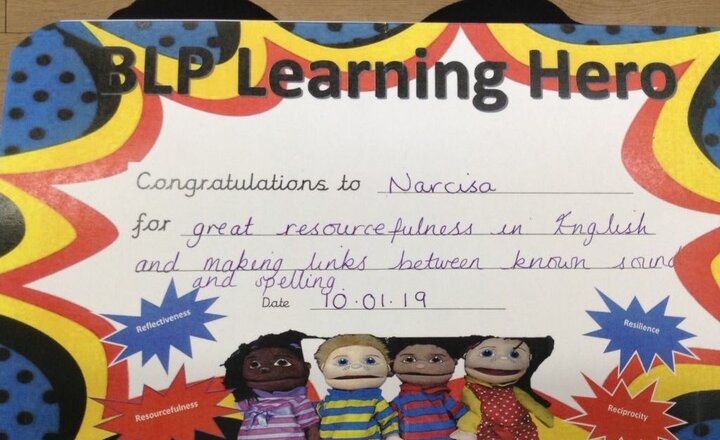 BLP Learning Hero
Congratulations to Narcisa
for great resourcefulness in English
and making links between known sound
and spelling.
Date 10.01.19
Reflectiveness
Resilience
Resourcefulness
Reciprocity